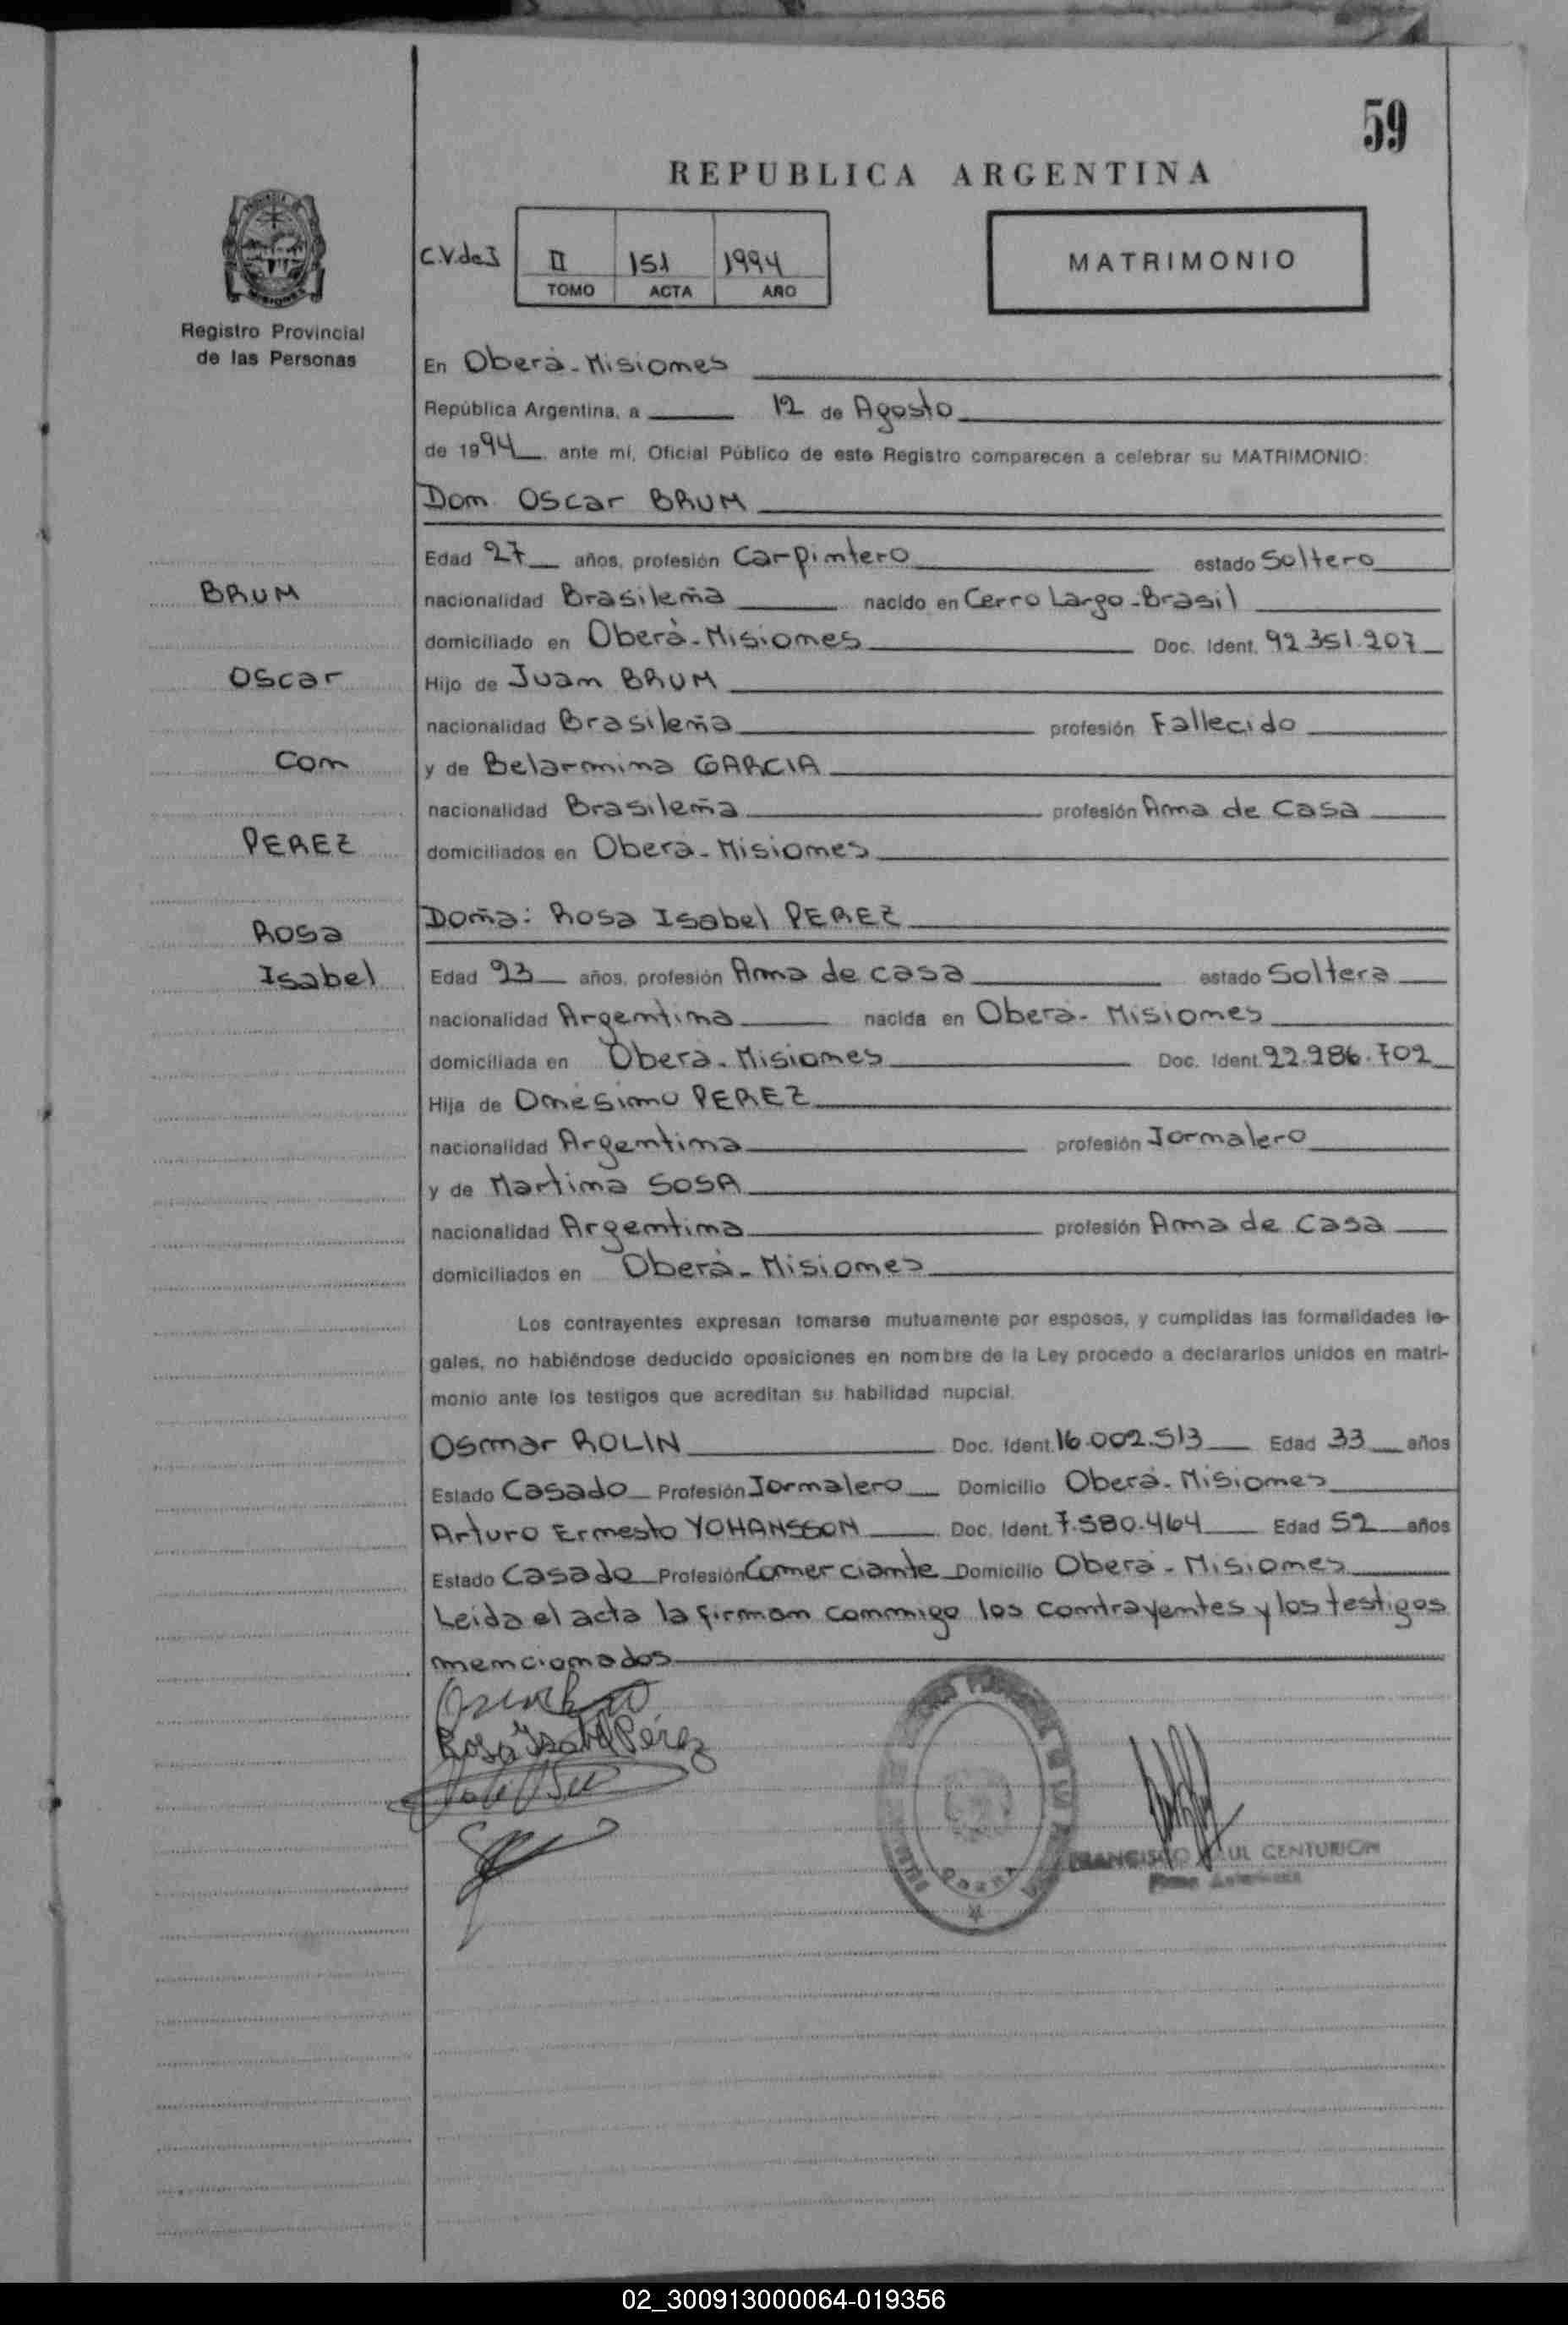 59
REPUBLICA ARGENTINA
C.V.de I II 151 1994
TOMO ACTA AÑO
MATRIMONIO
Registro Provincial
de las Personas
En Oberá - Misiones
República Argentina, a 12 de Agosto
de 1994 ante mí, Oficial Público de este Registro comparecen a celebrar su MATRIMONIO:
Don Oscar BRUM
Edad 27 años, profesión Carpintero estado Soltero
BRUM
nacionalidad Brasileña nacido en Cerro Largo - Brasil
domiciliado en Oberá - Misiones Doc. Ident. 92.351.207
Oscar
Hijo de Juan BRUM
nacionalidad Brasileña profesión Fallecido
Con
y de Belarmina GARCIA
nacionalidad Brasileña profesión Ama de Casa
PEREZ
domiciliados en Oberá - Misiones
Doña: Rosa Isabel PEREZ
Rosa
Isabel
Edad 23 años, profesión Ama de casa estado Soltera
nacionalidad Argentina nacida en Oberá - Misiones
domiciliada en Oberá - Misiones Doc. Ident. 22.986.702
Hija de Onésimo PEREZ
nacionalidad Argentina profesión Jornalero
y de Martina SOSA
nacionalidad Argentina profesión Ama de Casa
domiciliados en Oberá - Misiones
Los contrayentes expresan tomarse mutuamente por esposos, y cumplidas las formalidades le-
gales, no habiéndose deducido oposiciones en nombre de la Ley procedo a declararlos unidos en matri-
monio ante los testigos que acreditan su habilidad nupcial.
Osmar ROLIN Doc. Ident. 16.002.513 Edad 33 años
Estado Casado Profesión Jornalero Domicilio Oberá - Misiones
Arturo Ernesto YOHANSSON Doc. Ident. 7.580.464 Edad 52 años
Estado Casado Profesión Comerciante Domicilio Oberá - Misiones
Leida el acta la firman conmigo los contrayentes y los testigos
mencionados
Rosa Isabel Pérez
FRANCISCO RAUL CENTURION
02_300913000064-019356